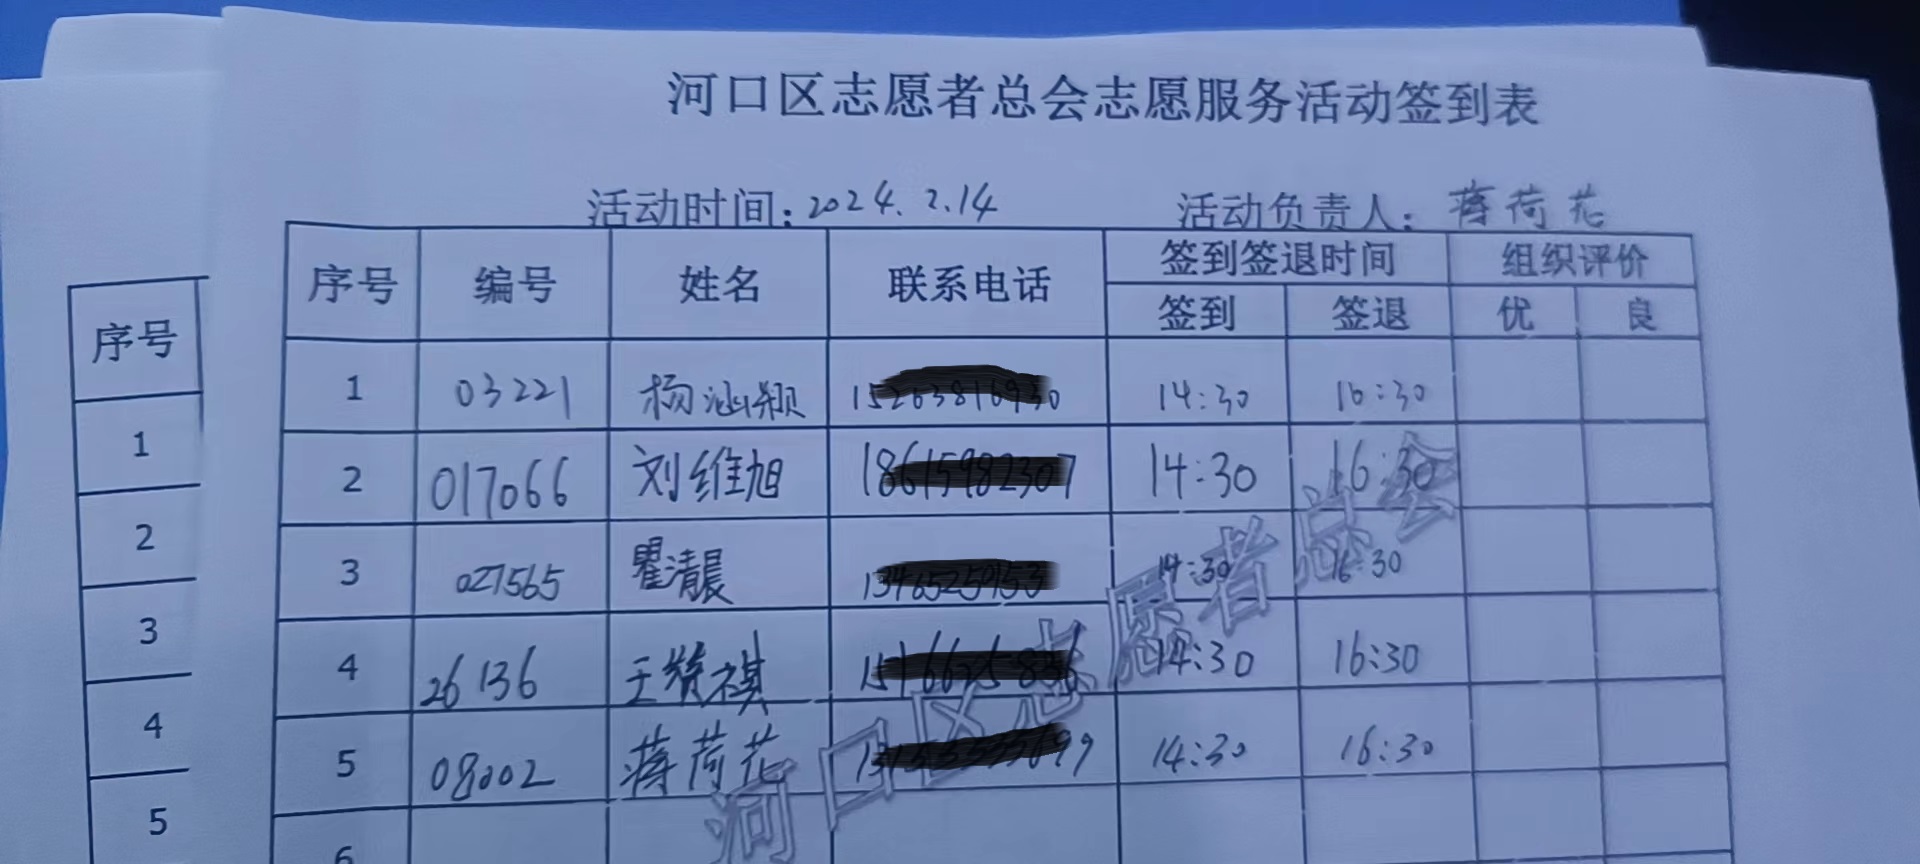 河口区志愿者总会志愿服务活动签到表
活动时间：2024.2.14 活动负责人：蒋荷花
序号 编号 姓名 联系电话 签到签退时间 组织评价
签到 签退 优 良
1 03221 杨涵颖 14:30 16:30
2 017066 刘维旭 14:30 16:30
3 027565 瞿清晨 14:30 16:30
4 26136 王赞祺 14:30 16:30
5 08002 蒋荷花 14:30 16:30
6
序号
1
2
3
4
5
河口区志愿者总会